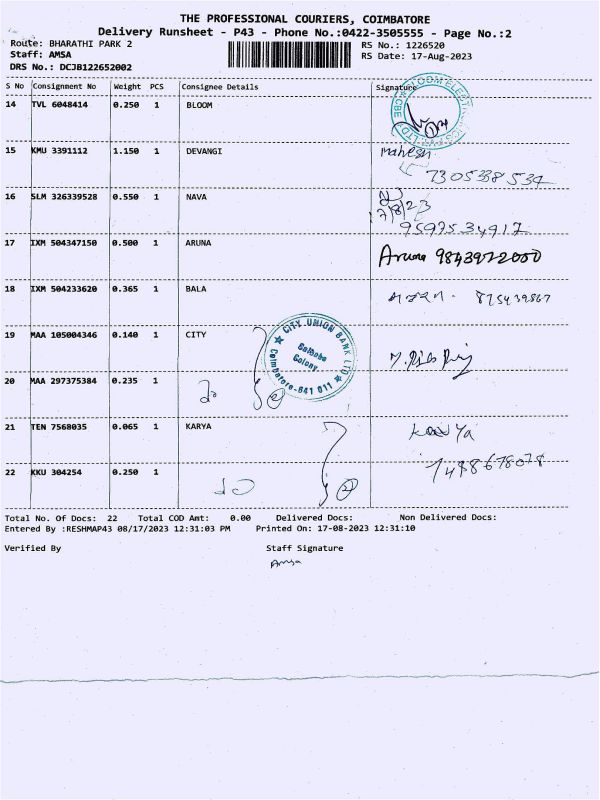 THE PROFESSIONAL COURIERS, COIMBATORE
Delivery Runsheet - P43 - Phone No.:0422-3505555 - Page No.:2
Route: BHARATHI PARK 2
RS No.: 1226520
Staff: AMSA
RS Date: 17-Aug-2023
DRS No.: DCJB122652002
S No Consignment No Weight PCS Consignee Details Signature
14 TVL 6048414 0.250 1 BLOOM
15 KMU 3391112 1.150 1 DEVANGI Mahesh
7305338534
16 SLM 326339528 0.550 1 NAVA
17/8/23
9597534917
17 IXM 504347150 0.500 1 ARUNA Aruna 9843922000
18 IXM 504233620 0.365 1 BALA
19 MAA 105004346 0.140 1 CITY
CITY UNION BANK LTD
Saibaba
Colony
Coimbatore-641 011
20 MAA 297375384 0.235 1
21 TEN 7568035 0.065 1 KARYA
22 KKU 304254 0.250 1
Total No. Of Docs: 22 Total COD Amt: 0.00 Delivered Docs: Non Delivered Docs:
Entered By :RESHMAP43 08/17/2023 12:31:03 PM Printed On: 17-08-2023 12:31:10
Verified By Staff Signature
Amsa